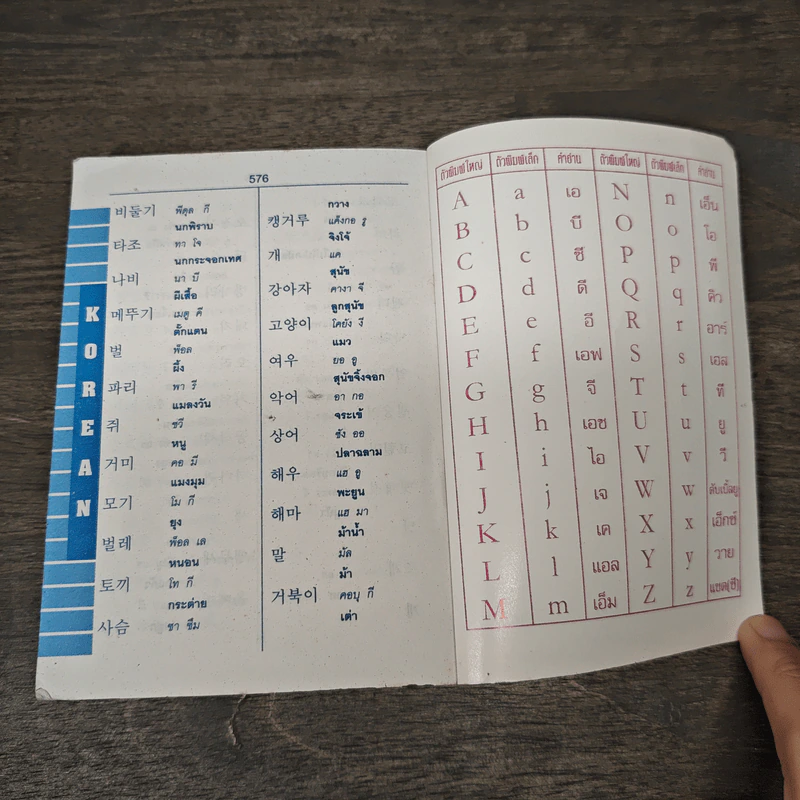 576
KOREAN
비둘기 พีดุล กี
นกพิราบ
타조 ทา โจ
นกกระจอกเทศ
나비 นา บี
ผีเสื้อ
메뚜기 เมตู คี
ตั๊กแตน
벌 พ็อล
ผึ้ง
파리 พา รี
แมลงวัน
쥐 ชวี
หนู
거미 คอ มี
แมงมุม
모기 โม กี
ยุง
벌레 พ็อล เล
หนอน
토끼 โท กี
กระต่าย
사슴 ซา ซึม
กวาง
캥거루 แค็งกอ รู
จิงโจ้
개 แค
สุนัข
강아자 คางา จี
ลูกสุนัข
고양이 โคยัง งี
แมว
여우 ยอ อู
สุนัขจิ้งจอก
악어 อา กอ
จระเข้
상어 ซัง ออ
ปลาฉลาม
해우 แฮ อู
พะยูน
해마 แฮ มา
ม้าน้ำ
말 มัล
ม้า
거북이 คอบุ กี
เต่า
ตัวพิมพ์ใหญ่ ตัวพิมพ์เล็ก คำอ่าน ตัวพิมพ์ใหญ่ ตัวพิมพ์เล็ก คำอ่าน
A a เอ N n เอ็น
B b บี O o โอ
C c ซี P p พี
D d ดี Q q คิว
E e อี R r อาร์
F f เอฟ S s เอส
G g จี T t ที
H h เอช U u ยู
I i ไอ V v วี
J j เจ W w ดับเบิ้ลยู
K k เค X x เอ็กซ์
L l แอล Y y วาย
M m เอ็ม Z z แซด(ซี)